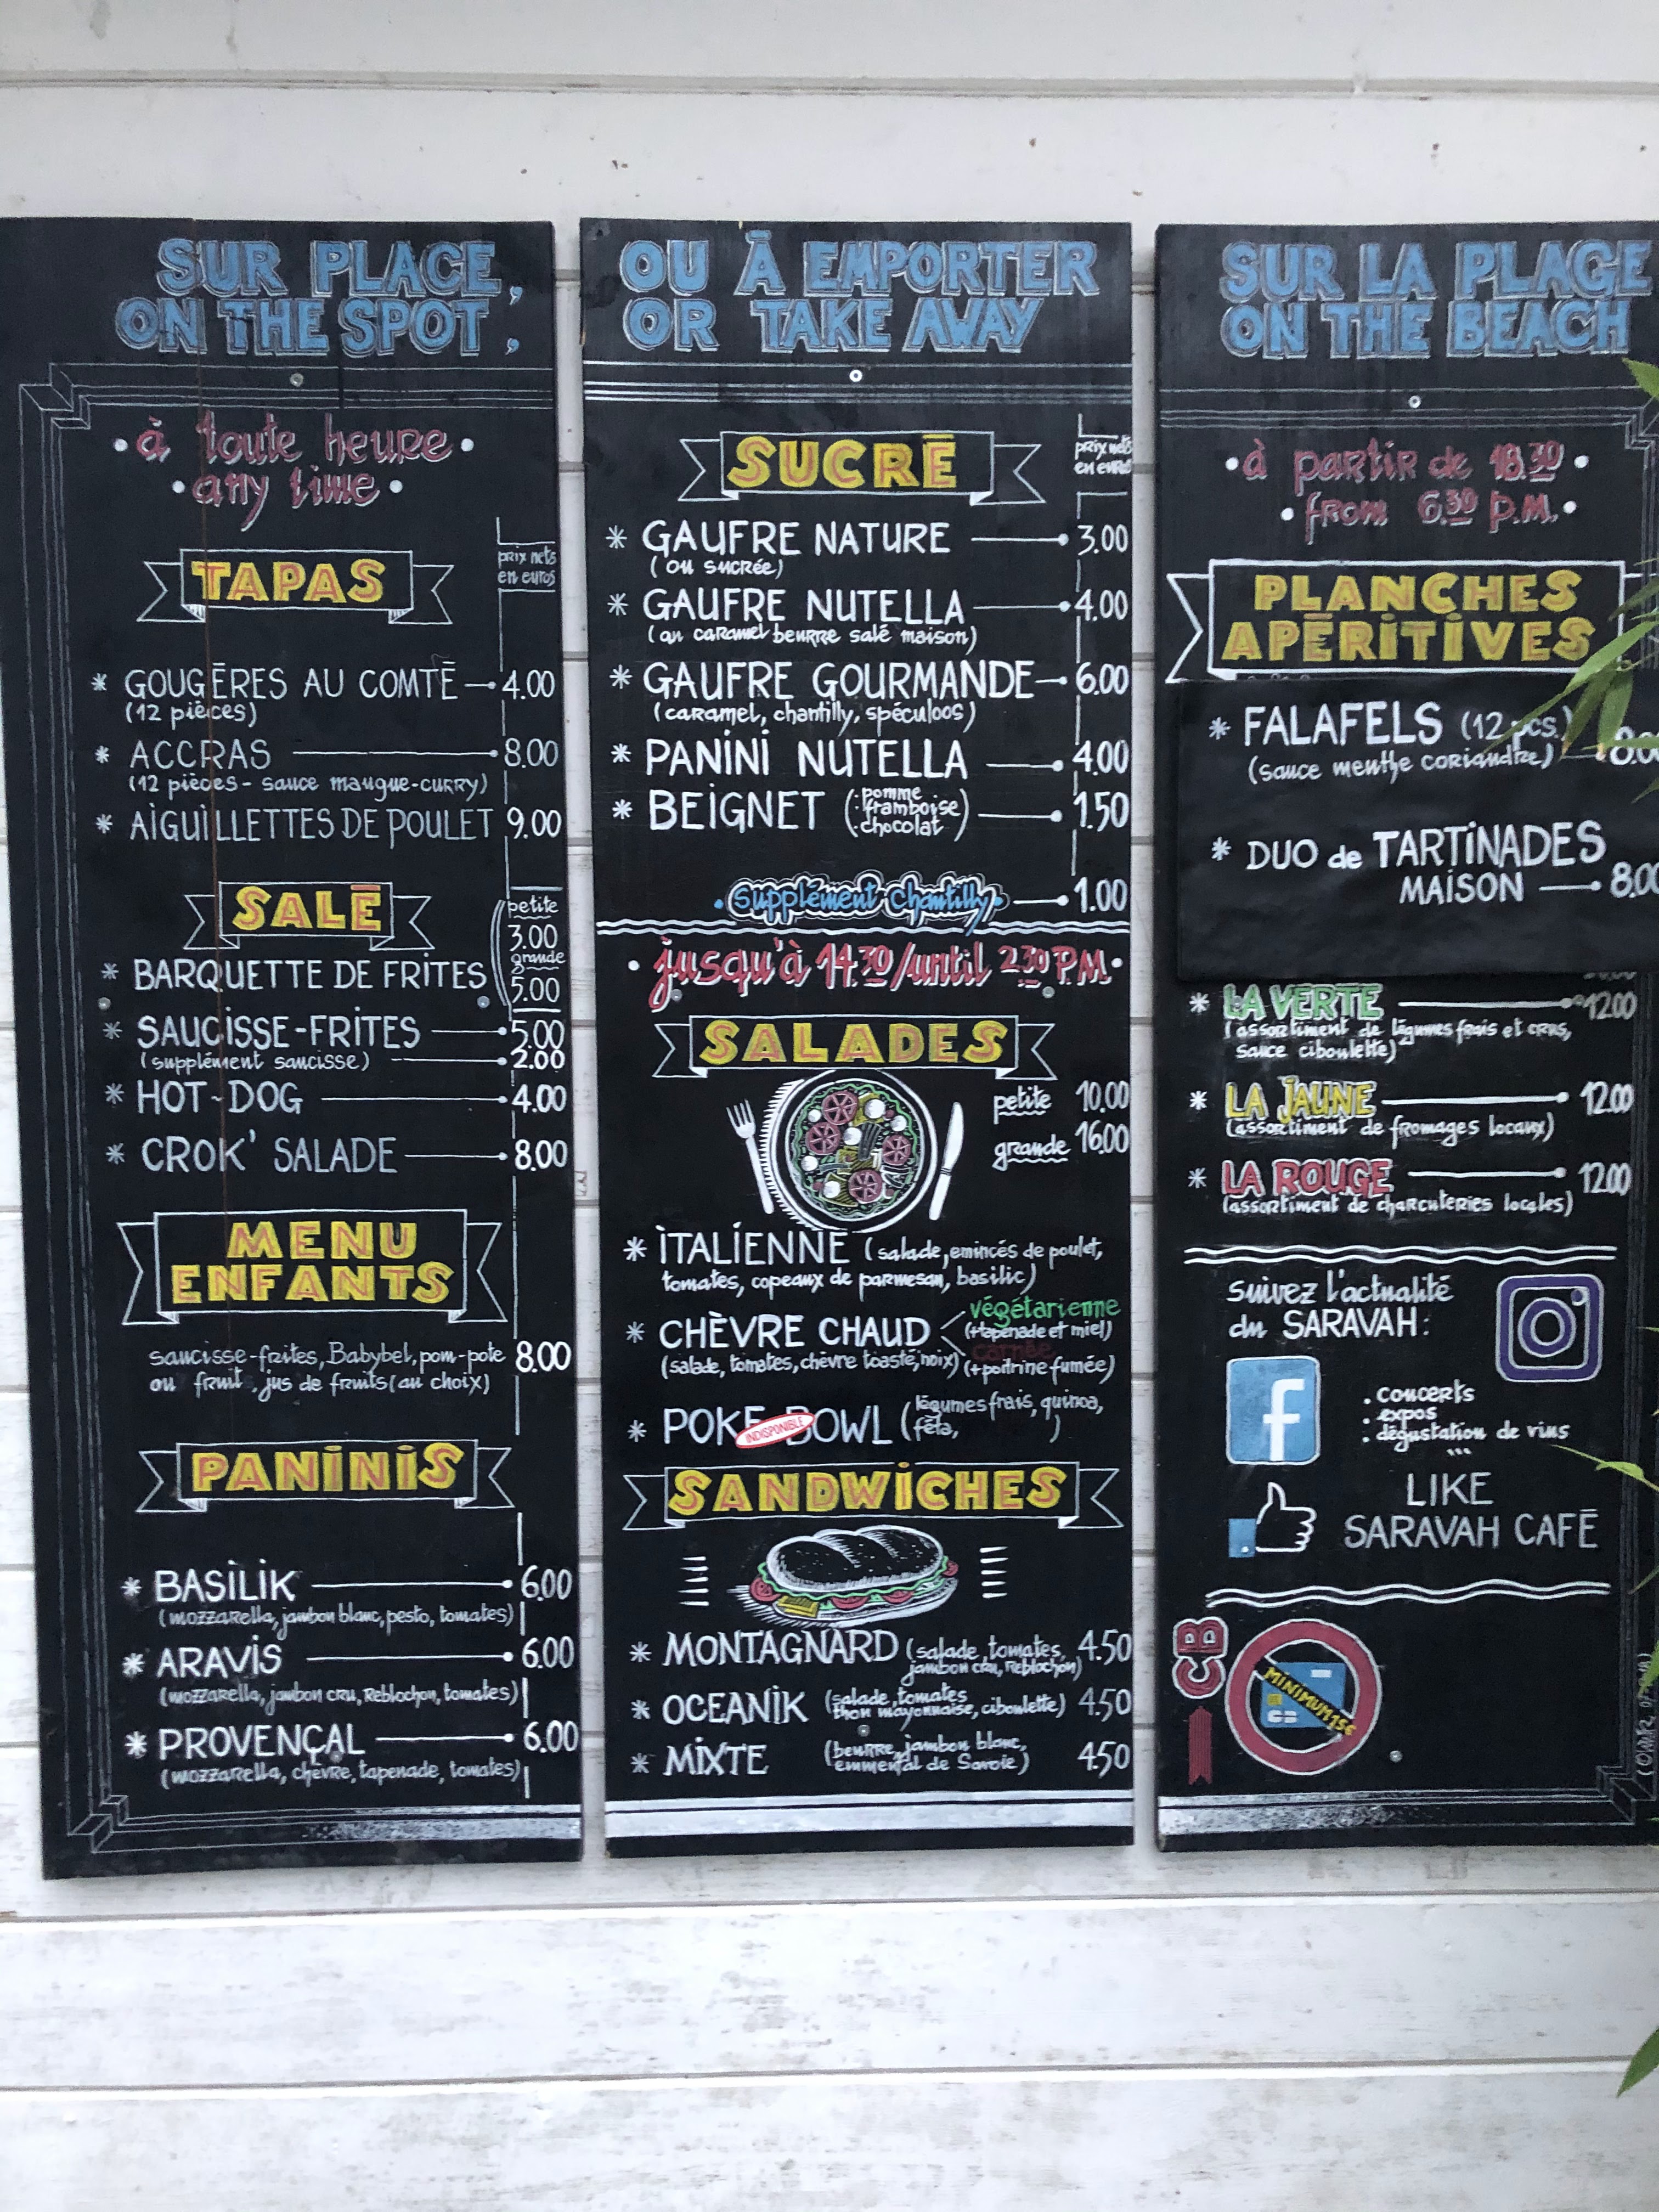 SUR PLACE,
ON THE SPOT,
• à toute heure •
• any time •
TAPAS
prix nets
en euros
* GOUGÈRES AU COMTÉ 4.00
(12 pièces)
* ACCRAS 8.00
(12 pièces - sauce mangue-curry)
* AIGUILLETTES DE POULET 9.00
SALÉ
petite
3.00
grande
5.00
* BARQUETTE DE FRITES
* SAUCISSE-FRITES 5.00
(supplément saucisse) 2.00
* HOT-DOG 4.00
* CROK' SALADE 8.00
MENU
ENFANTS
saucisse-frites, Babybel, pom-pote 8.00
ou fruit, jus de fruits (au choix)
PANINIS
* BASILIK 6.00
(mozzarella, jambon blanc, pesto, tomates)
* ARAVIS 6.00
(mozzarella, jambon cru, Reblochon, tomates)
* PROVENÇAL 6.00
(mozzarella, chèvre, tapenade, tomates)
OU À EMPORTER
OR TAKE AWAY
SUCRÉ
prix nets
en euros
* GAUFRE NATURE 3.00
(ou sucrée)
* GAUFRE NUTELLA 4.00
(ou caramel beurre salé maison)
* GAUFRE GOURMANDE 6.00
(caramel, chantilly, spéculoos)
* PANINI NUTELLA 4.00
* BEIGNET (: pomme
: framboise
: chocolat) 1.50
• Supplément Chantilly • 1.00
• jusqu'à 14.30 / until 2.30 P.M. •
SALADES
petite 10.00
grande 16.00
* ITALIENNE (salade, émincés de poulet,
tomates, copeaux de parmesan, basilic)
* CHÈVRE CHAUD végétarienne
(+tapenade et miel)
carnée
(salade, tomates, chèvre toasté, noix) (+poitrine fumée)
* POKE BOWL (légumes frais, quinoa,
fêta, )
INDISPONIBLE
SANDWICHES
* MONTAGNARD (salade, tomates, 4.50
jambon cru, Reblochon)
* OCEANIK (salade, tomates
thon mayonnaise, ciboulette) 4.50
* MIXTE (beurre, jambon blanc,
emmental de Savoie) 4.50
SUR LA PLAGE
ON THE BEACH
• à partir de 18.30 •
• from 6.30 P.M. •
PLANCHES
APÉRITIVES
* FALAFELS (12 pcs.) 8.0
(sauce menthe coriandre)
* DUO de TARTINADES
MAISON 8.00
* LA VERTE 12.00
(assortiment de légumes frais et crus,
sauce ciboulette)
* LA JAUNE 12.00
(assortiment de fromages locaux)
* LA ROUGE 12.00
(assortiment de charcuteries locales)
suivez l'actualité
du SARAVAH :
f
. concerts
. expos
. dégustation de vins
...
LIKE
SARAVAH CAFÉ
CB
MINIMUM 15€
CB